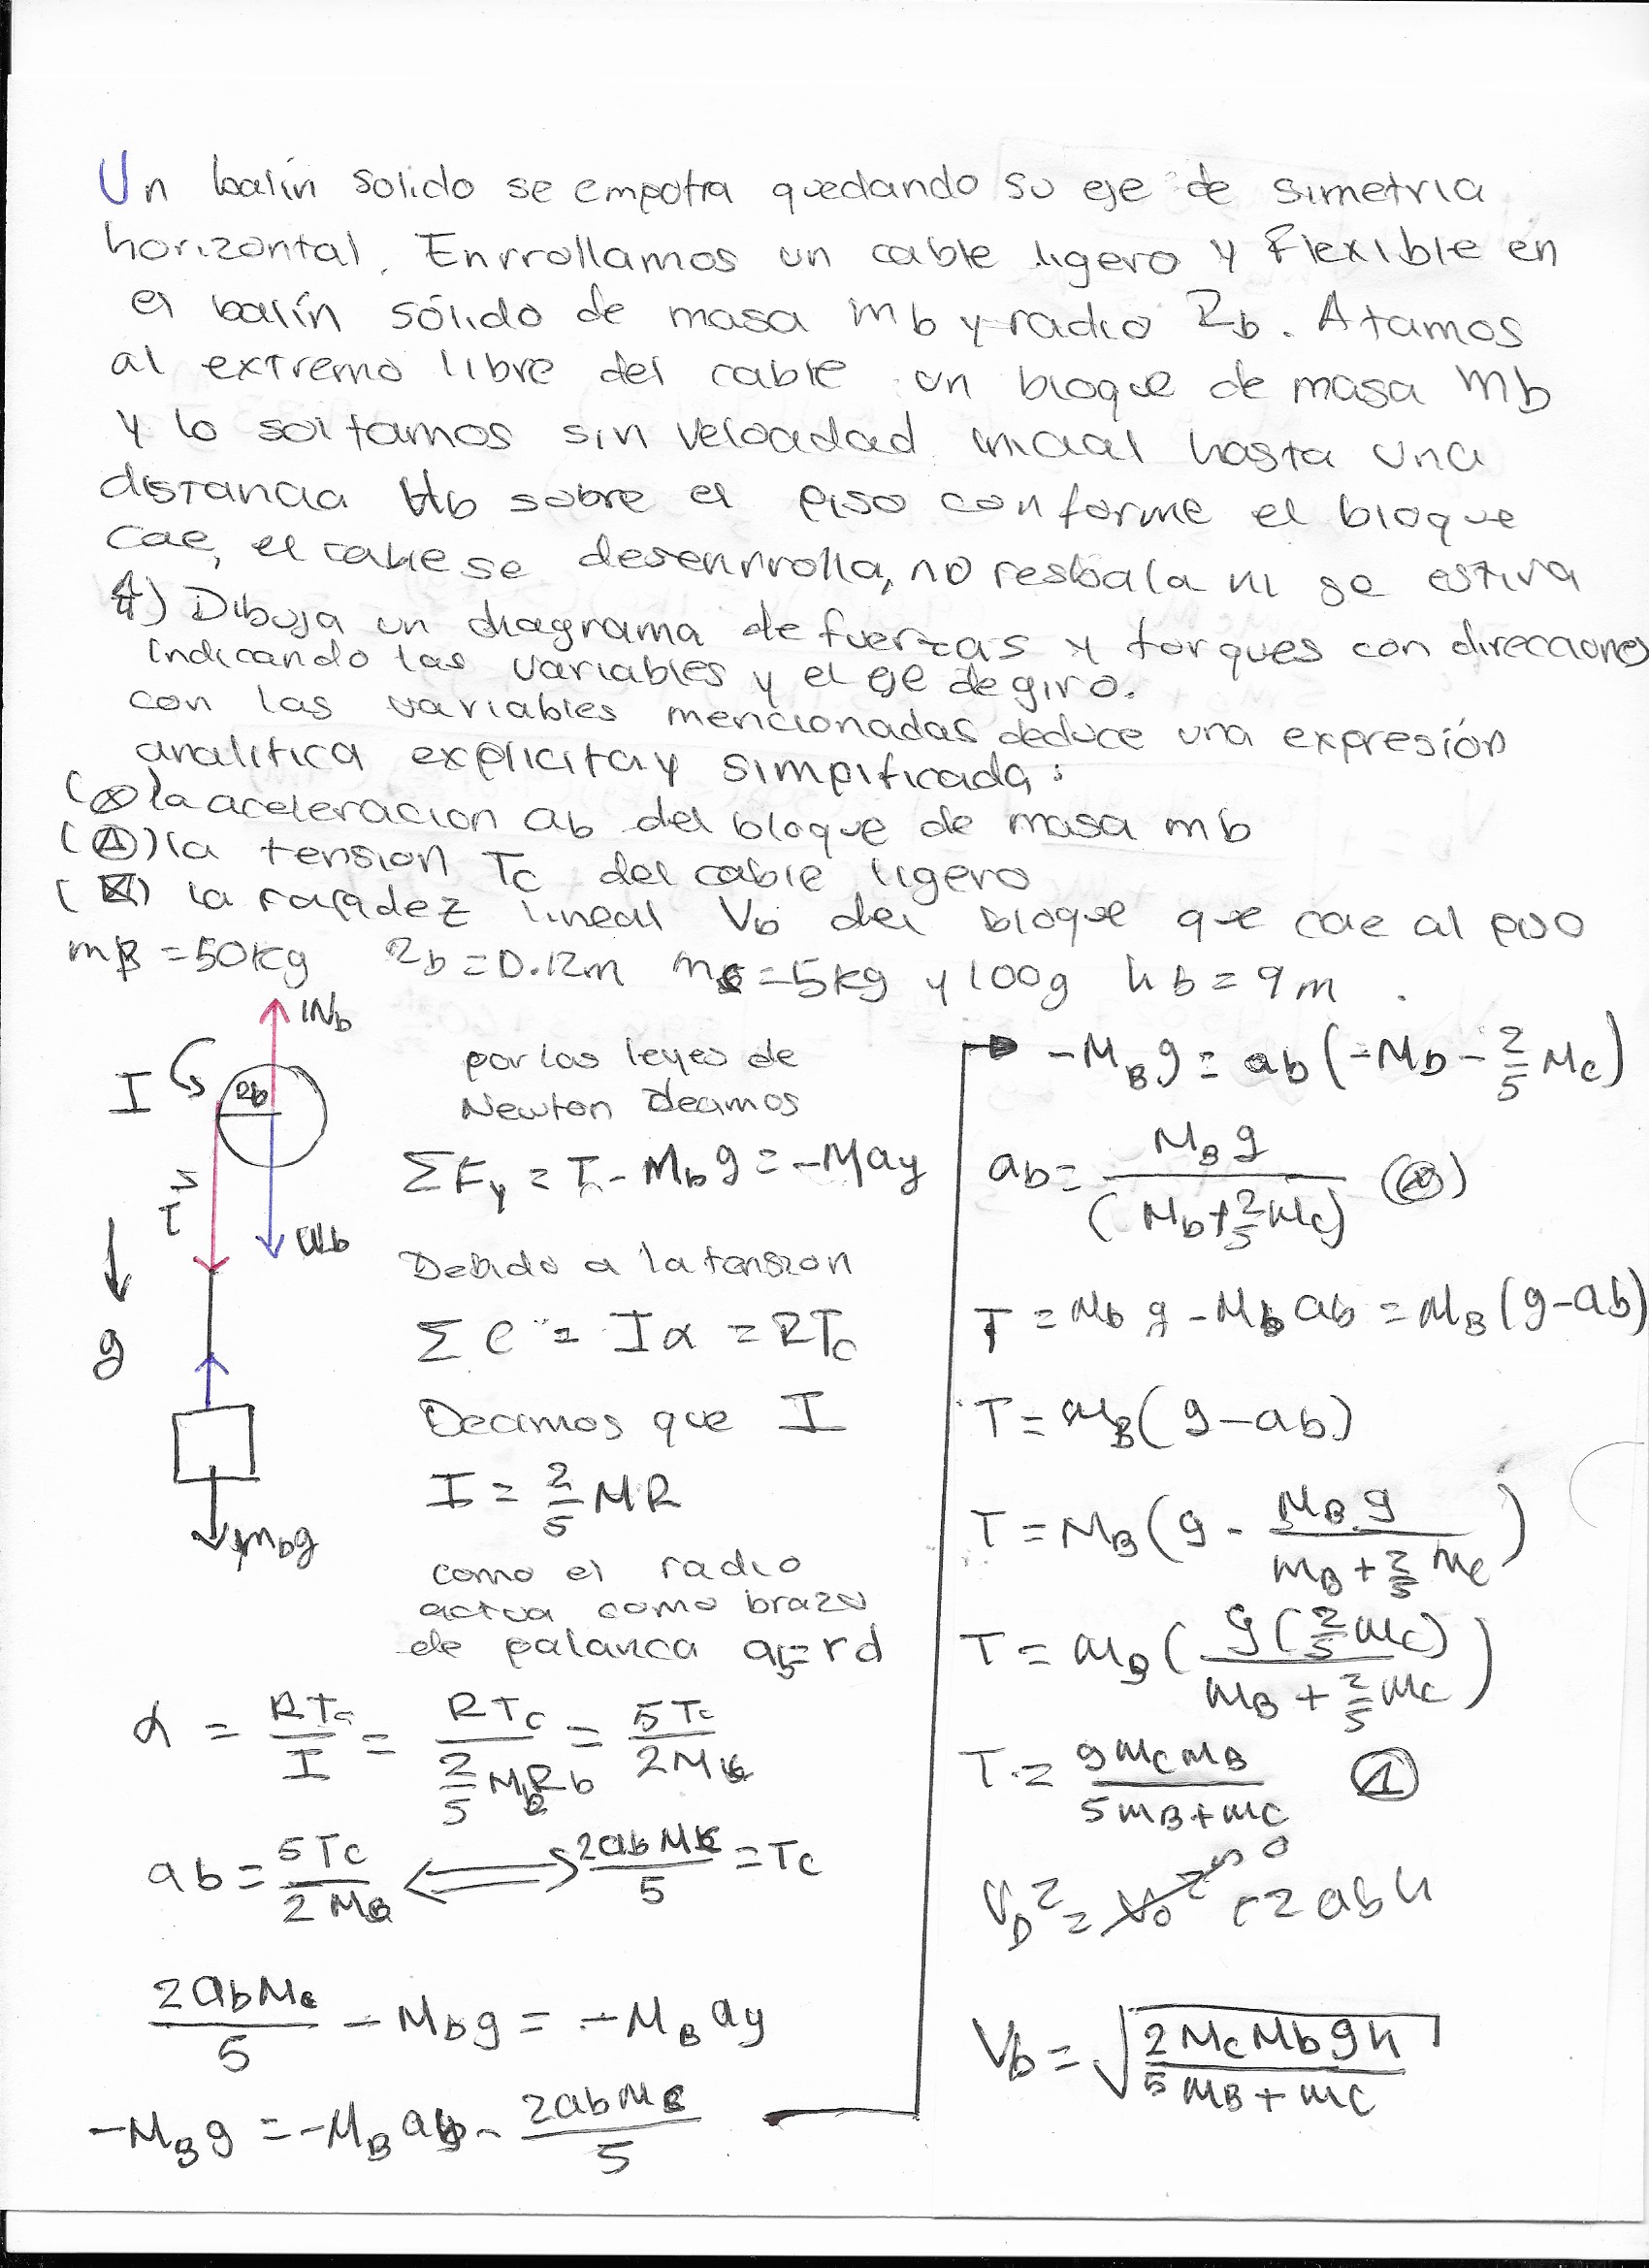 Un balín solido se empotra quedando su eje de simetria
horizontal. Enrrollamos un cable ligero y Flexible en
el balín sólido de masa mb y radio Rb. Atamos
al extremo libre del cable un bloque de masa mb
y lo soltamos sin velocidad inicial hasta una
distancia Hb sobre el piso conforme el bloque
cae, el cable se desenrrolla, no resbala ni se estira
A) Dibuja un diagrama de fuerzas y torques con direcciones
indicando las variables y el eje de giro.
con las variables mencionadas deduce una expresión
analitica explicita y simpificada:
(⊗) la aceleracion ab del bloque de masa mb
(Δ) la tension Tc del cable ligero
(⊠) la rapidez lineal Vb del bloque que cae al piso
mB = 50kg Rb = 0.12m mc = 5kg y 100g hb = 9m.
Nb
I
Rb
T
Wb
g
mbg
por las leyes de
Newton decimos
ΣFy = T - Mb g = -May
Debido a la tension
Σ τ = Iα = RTc
Decimos que I
I = 2/5 MR
como el radio
actua como brazo
de palanca ab = rα
α = RTc/I = RTc/(2/5 McRb) = 5Tc/2Mc
ab = 5Tc/2Mc ⟺ 2abMc/5 = Tc
2abMc/5 - Mbg = -MB ay
-MBg = -MB ab - 2abMc/5
-MBg = ab(-Mb - 2/5 Mc)
ab = MBg/(Mb + 2/5 Mc) (⊗)
T = Mb g - Mb ab = MB(g-ab)
T = MB(g-ab)
T = MB(g - MBg/(mB + 2/5 Mc))
T = MB(g(2/5 Mc)/(MB + 2/5 Mc))
T = 9McMB/(5MB+MC) Δ
Vb² = V0² 0 + 2abh
Vb = √(2McMbgh/(5MB+MC))